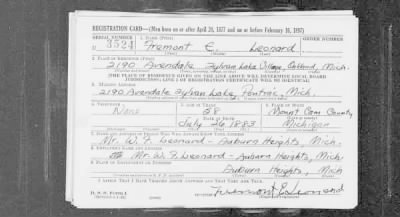 REGISTRATION CARD—(Men born on or after April 28, 1877 and on or before February 16, 1897)
SERIAL NUMBER 1. NAME (Print) ORDER NUMBER
U 3524 Fremont E. Leonard
(First) (Middle) (Last)
2. PLACE OF RESIDENCE (Print)
2190 Avendale Sylvan Lake Village, Oakland, Mich.
[THE PLACE OF RESIDENCE GIVEN ON THE LINE ABOVE WILL DETERMINE LOCAL BOARD
JURISDICTION; LINE 2 OF REGISTRATION CERTIFICATE WILL BE IDENTICAL]
3. MAILING ADDRESS
2190 Avendale Sylvan Lake Pontiac, Mich.
4. TELEPHONE 5. AGE IN YEARS 6. PLACE OF BIRTH
None 58 County
DATE OF BIRTH
July 26 1883 Michigan
7. NAME AND ADDRESS OF PERSON WHO WILL ALWAYS KNOW YOUR ADDRESS
Mr. W. F. Leonard - Auburn Heights, Mich.
8. EMPLOYER'S NAME AND ADDRESS
Mr. W. F. Leonard - Auburn Heights, Mich.
Auburn Heights, Mich
I AFFIRM THAT I HAVE VERIFIED ABOVE ANSWERS AND THAT THEY ARE TRUE.
D. S. S. Form 1
Fremont E Leonard